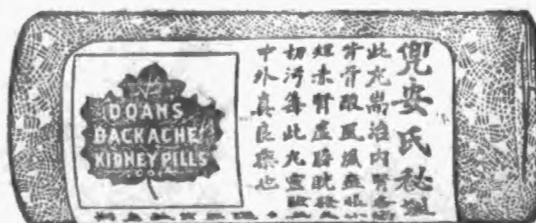 兜安氏秘
此丸耑治内腎各
背骨酸風濕
短赤腎虛膀胱發
切污毒此丸靈驗
中外真良藥也
DOANS
BACKACHE
KIDNEY PILLS